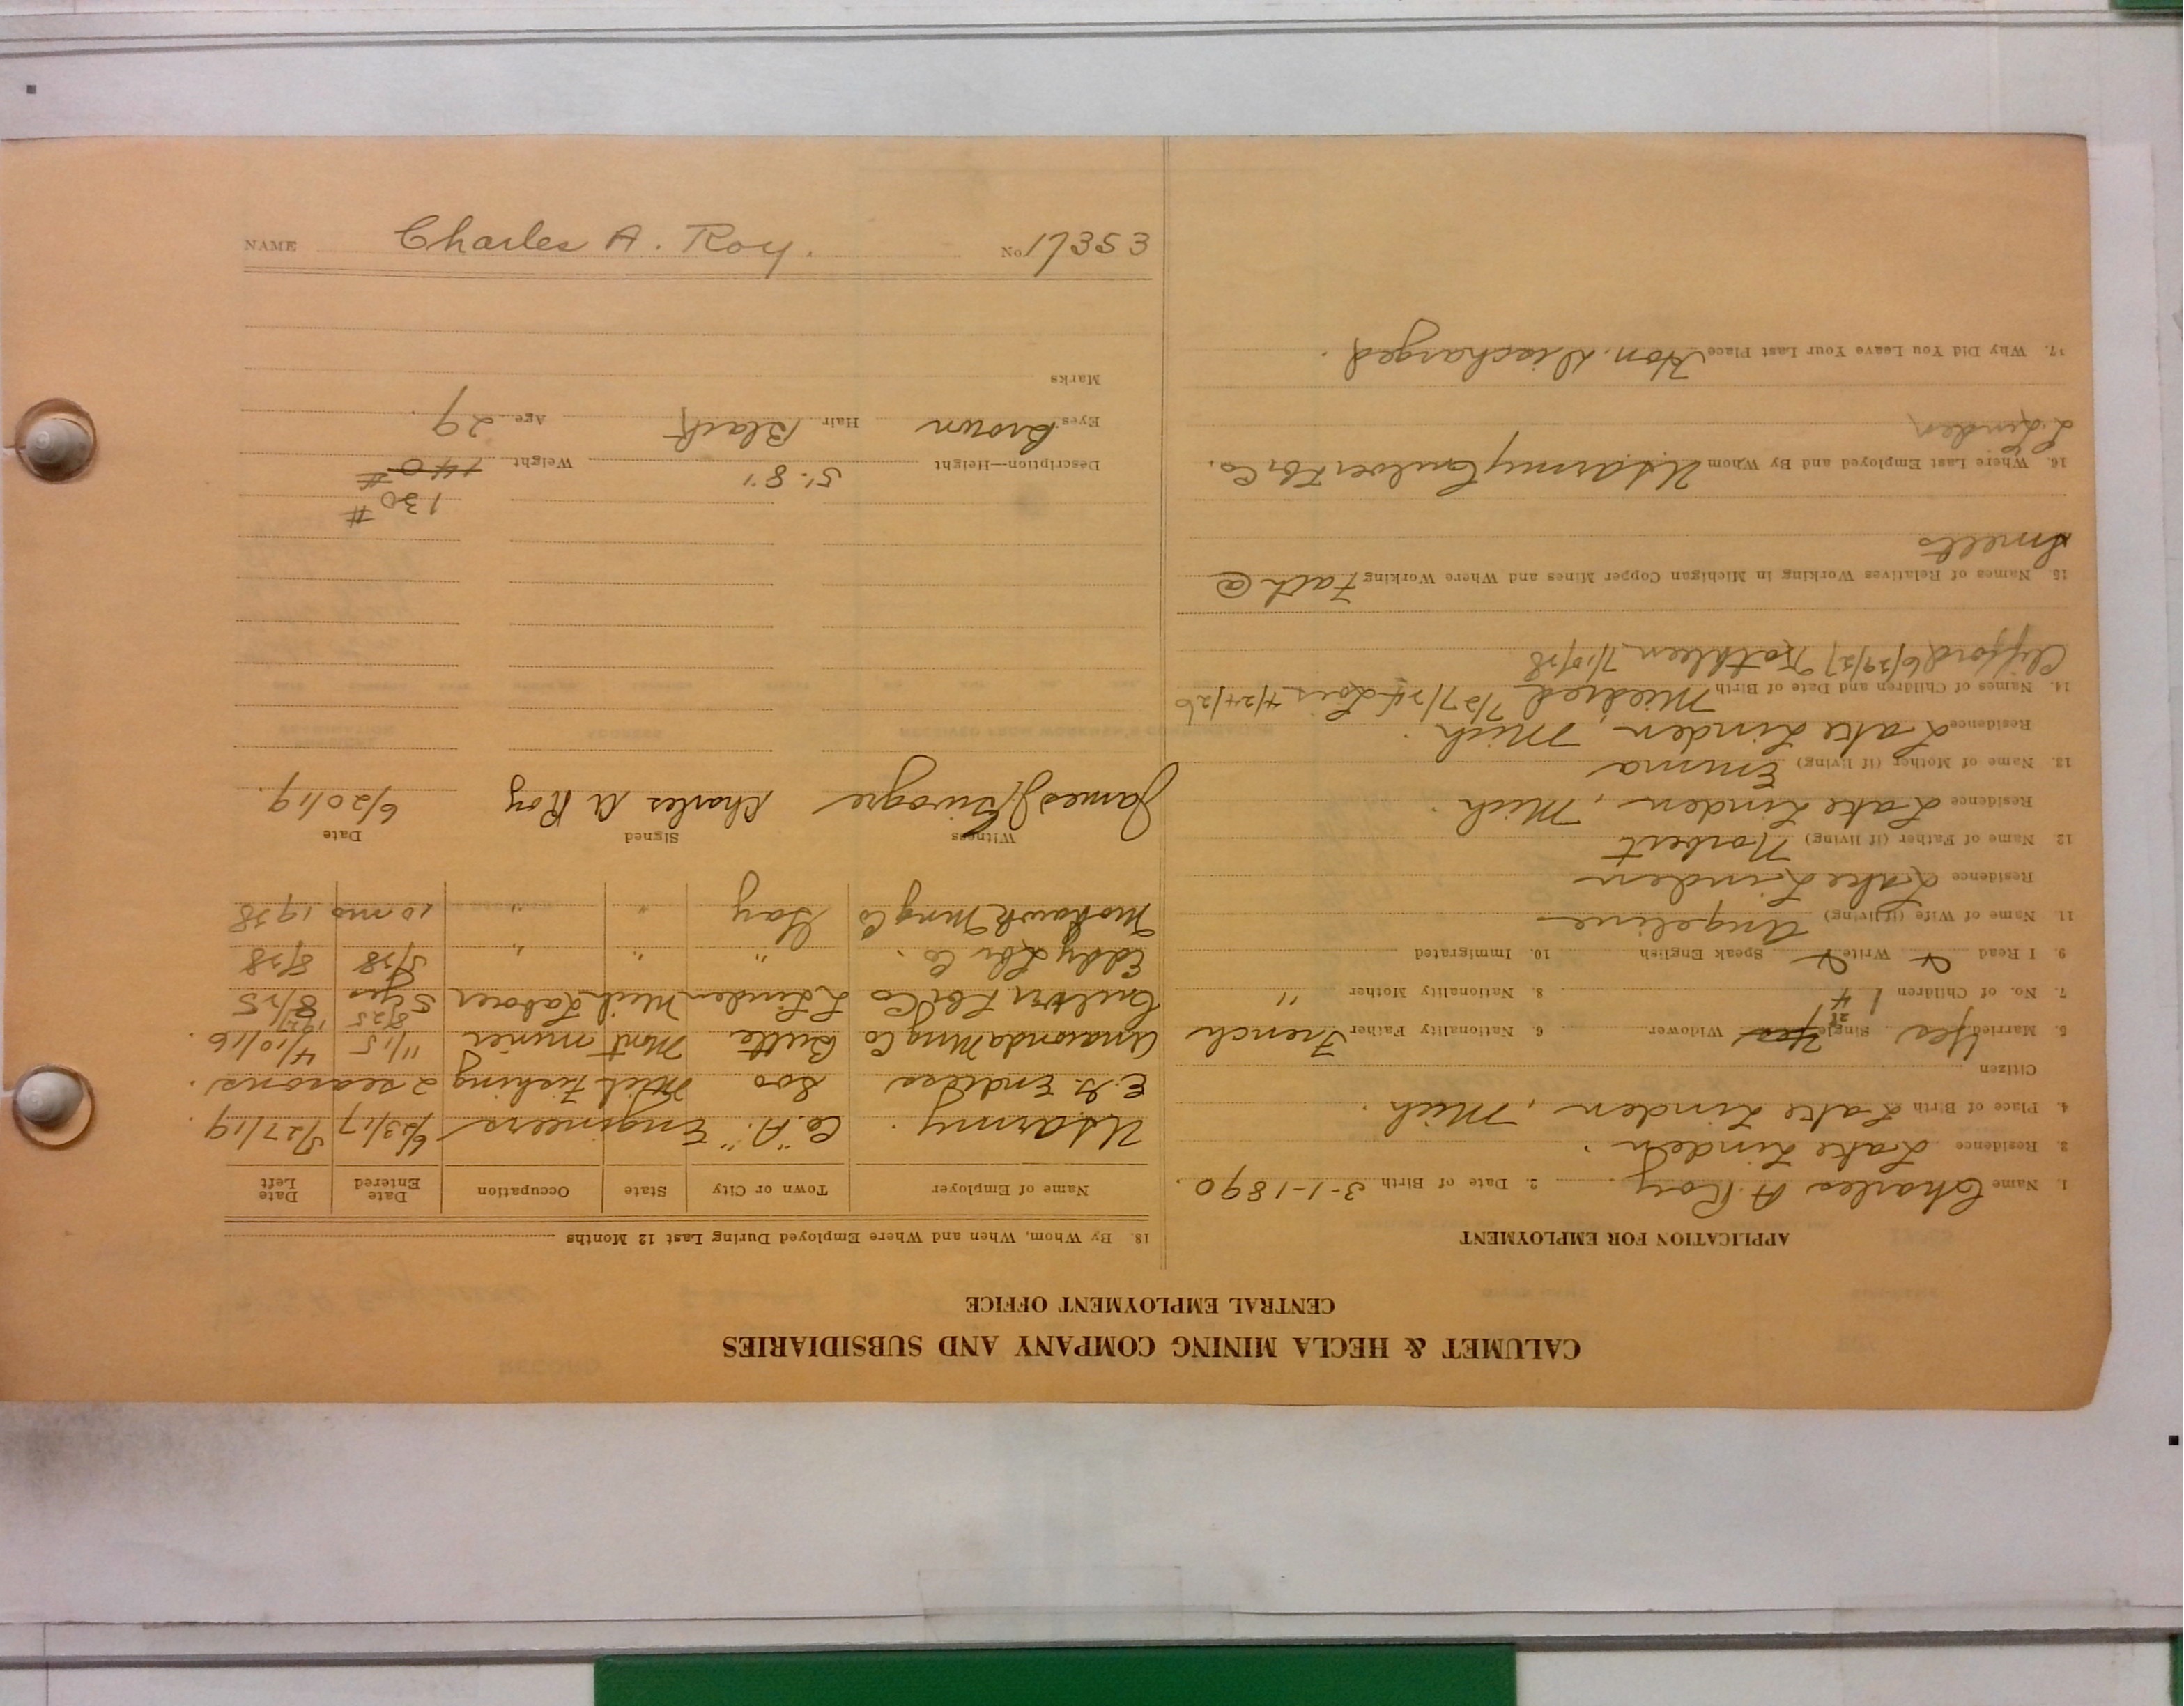 CALUMET & HECLA MINING COMPANY AND SUBSIDIARIES
CENTRAL EMPLOYMENT OFFICE
APPLICATION FOR EMPLOYMENT
1. Name Charles A. Roy. 2. Date of Birth 3-1-1890.
3. Residence Lake Linden.
4. Place of Birth Lake Linden, Mich.
Citizen
5. Married Yes Single Yes Widower 6. Nationality Father French
7. No. of Children 4 8. Nationality Mother "
9. I Read Write Speak English 10. Immigrated
11. Name of Wife (if living) Angeline
Residence Lake Linden
12 Name of Father (if living) Norbert
Residence Lake Linden, Mich.
13. Name of Mother (if living) Emma
Residence Lake Linden, Mich.
14. Names of Children and Date of Birth Mildred 7/27/24 Lois 4/24/26
Clifford 6/29/27 Kathleen 7/10/28
15. Names of Relatives Working in Michigan Copper Mines and Where Working Fath @
Smelts
16. Where Last Employed and By Whom U.S. army Culver Lbr Co.
L. Linden
17. Why Did You Leave Your Last Place Hon. Discharged.
18. By Whom, When and Where Employed During Last 12 Months
Name of Employer Town or City State Occupation Date Entered Date Left
U.S. army. Co. "A." Engineers 6/23/17 5/27/19.
E. G. Endress Soo Mich Fishing 2 seasons.
Anaconda Mng Co Butte Mont miner 11/15 4/10/16.
Lbr Co L Linden Mich Laborer 5 yrs 8/25
Eddy Lbr Co. " " " 5/28 8/28
Mohawk Mng Co Gay " " 10 mo 1928
Witness Signed Date
James Charles A Roy 6/20/19.
130 #
Description—Height 5' 8" Weight 140 #
Eyes Brown Hair Black Age 29.
Marks
NAME Charles A. Roy. No. 17353